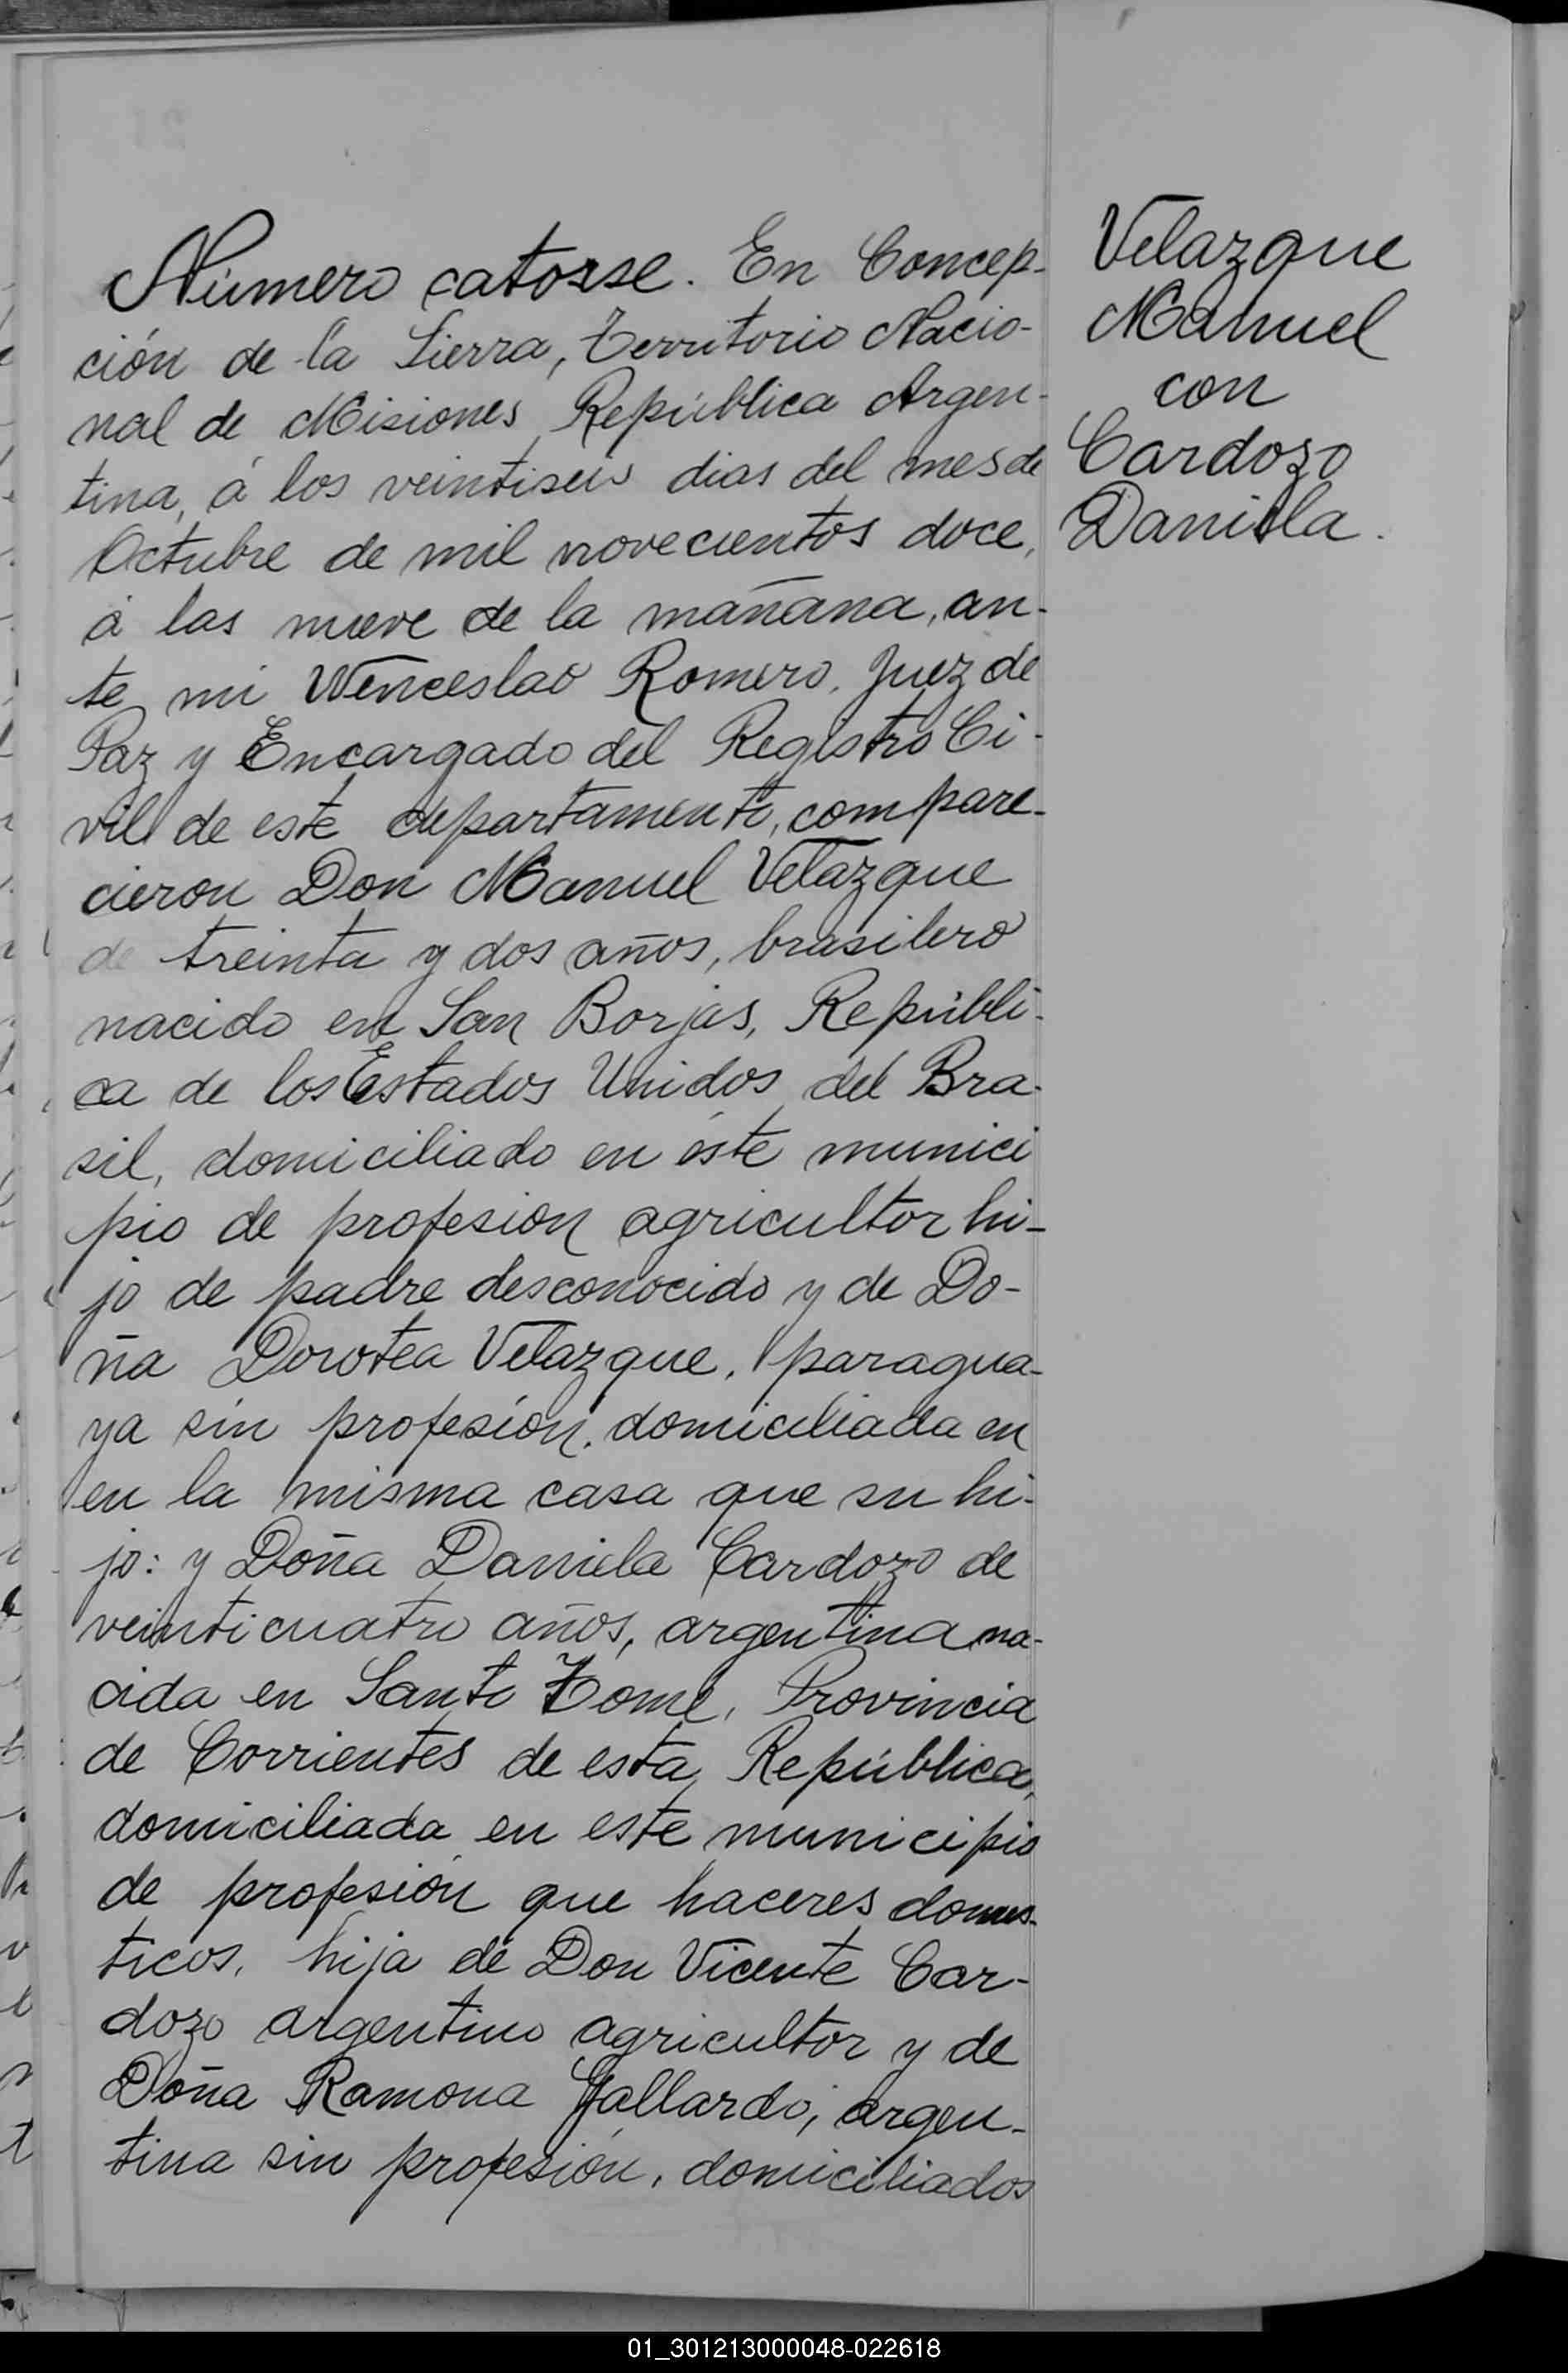 Número catorse. En Concep-
ción de la Sierra, Territorio Nacio-
nal de Misiones, República Argen-
tina, á los veintiseis dias del mes de
Octubre de mil novecientos doce,
á las nueve de la mañana, an-
te mi Wenceslao Romero, Juez de
Paz y Encargado del Registro Ci-
vil de este departamento, compare-
cieron Don Manuel Velazque
de treinta y dos años, brasilero
nacido en San Borjas, Repúbli-
ca de los Estados Unidos del Bra-
sil, domiciliado en éste munici
pio de profesion agricultor hi-
jo de padre desconocido y de Do-
ña Dorotea Velazque, paragua-
ya sin profesión, domiciliada en
en la misma casa que su hi-
jo: y Doña Daniela Cardozo de
veinticuatro años, argentina na-
cida en Santo Tomé, Provincia
de Corrientes de esta República,
domiciliada en este municipio
de profesión que haceres domes-
ticos, hija de Don Vicente Car-
dozo argentino agricultor y de
Doña Ramona Gallardo, argen-
tina sin profesión, domiciliados
Velazque
Manuel
con
Cardozo
Daniela.
01_301213000048-022618